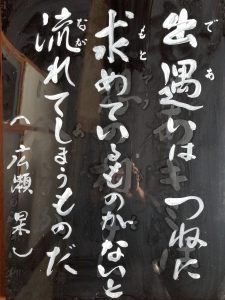 出遇いは つねに
求めているものがないと
流れてしまうものだ
(広瀬 杲)